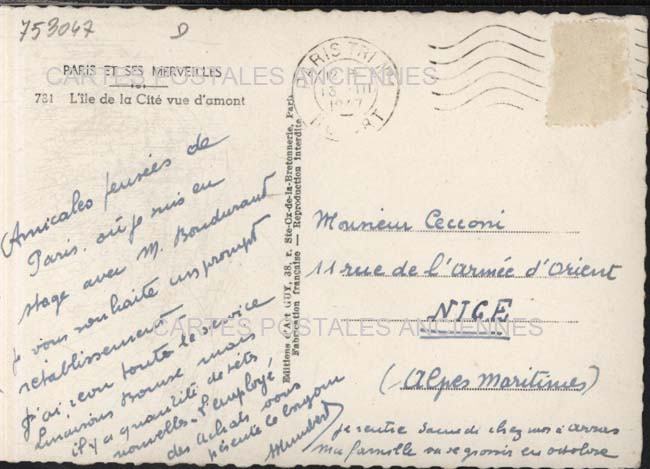 753047
D
PARIS ET SES MERVEILLES
781 L'Ile de la Cité vue d'amont
CARTES POSTALES ANCIENNES
PARIS TRI
13 III
1947
DÉPART
Editions d'Art GUY, 38, r. Ste-Cx-de-la-Bretonnerie, Paris
Fabrication française — Reproduction interdite
Amicales pensées de
Paris. où je suis en
stage avec M. Bondurand
je vous souhaite un prompt
rétablissement
J'ai revu toute le service
Bourse mais
il y a quantité de têtes
nouvelles. L'employé
des achats vous
présente le bonjour
Monsieur Cecconi
11 rue de l'Armée d'Orient
NICE
(Alpes Maritimes)
CARTES POSTALES ANCIENNES
je rentre Samedi chez moi à Arras
Ma famille va se grossir en octobre